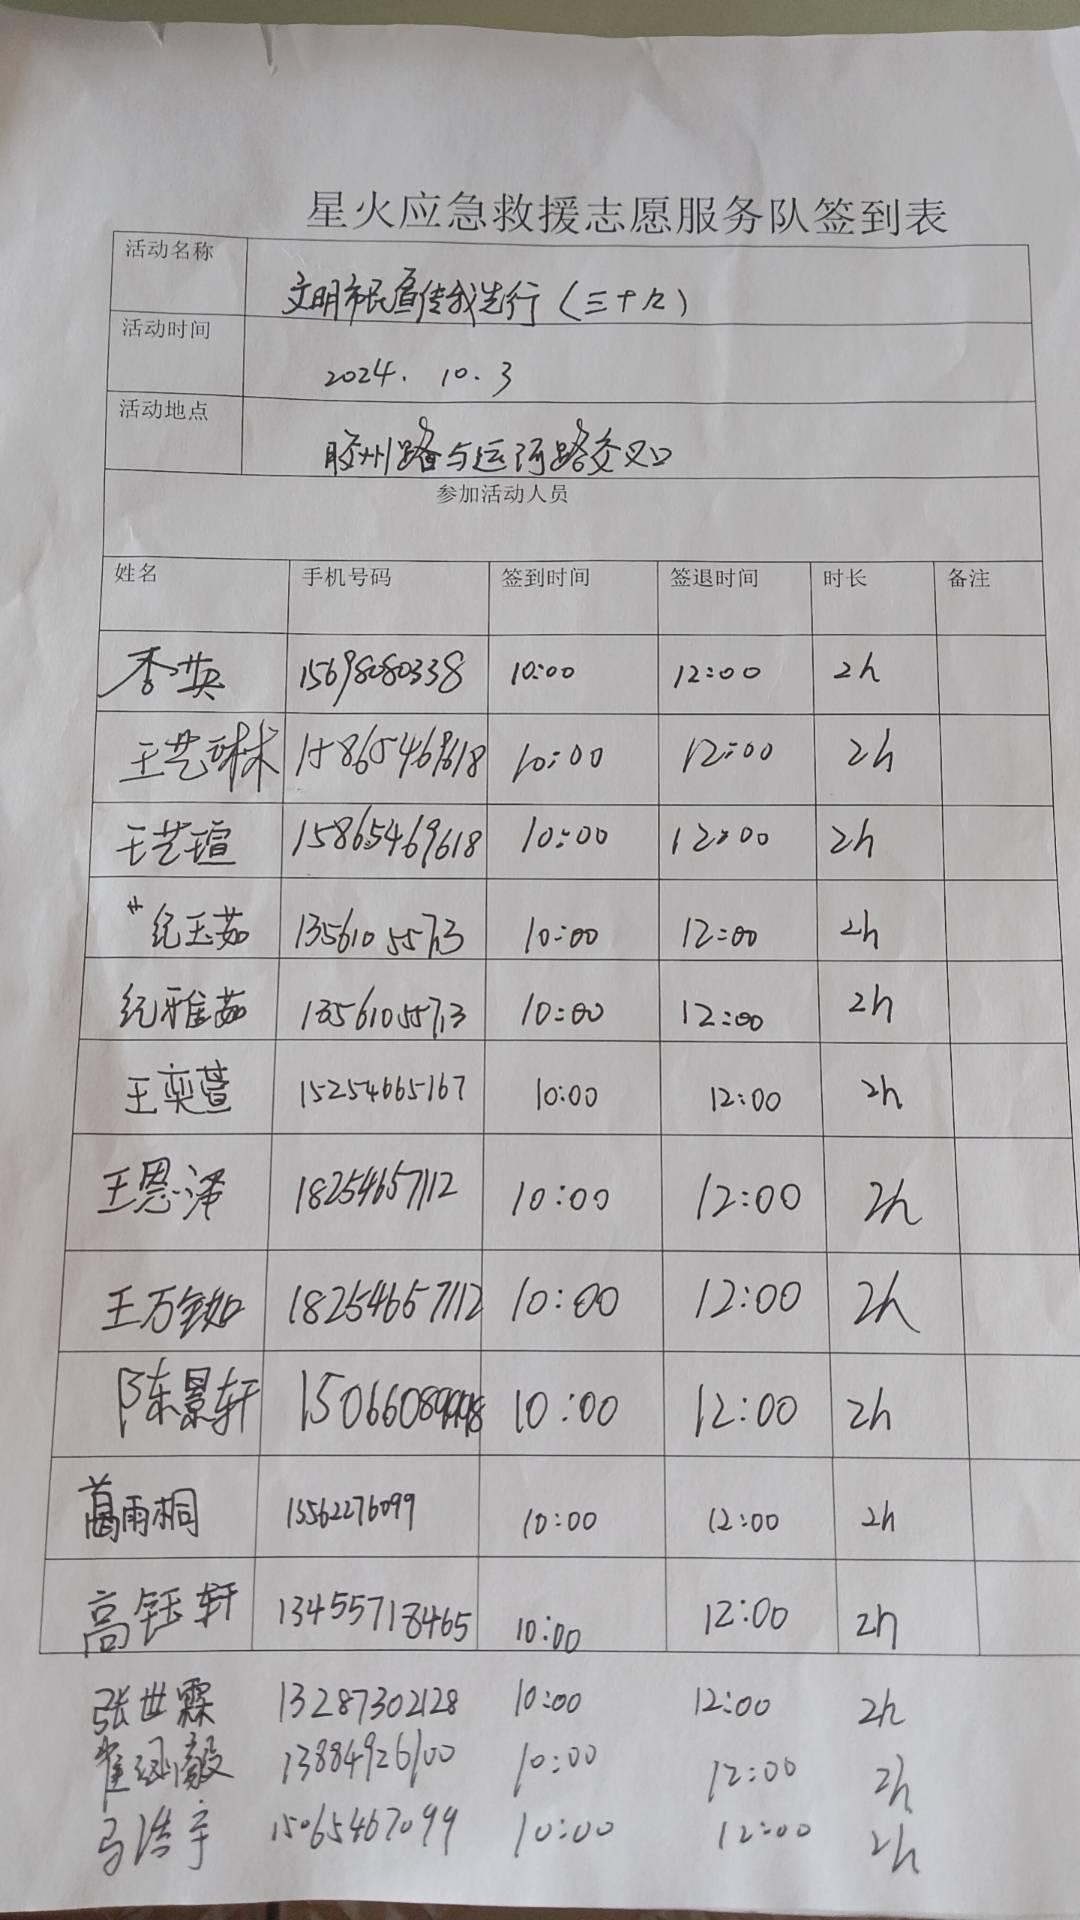 星火应急救援志愿服务队签到表
活动名称 文明市民宣传我先行（三十九）
活动时间 2024. 10. 3
活动地点 胶州路与运河路交叉口
参加活动人员
姓名 手机号码 签到时间 签退时间 时长 备注
李英 15698080338 10:00 12:00 2h
王艺琳 15865469618 10:00 12:00 2h
王艺瑄 15865469618 10:00 12:00 2h
纪玉茹 10:00 12:00 2h
纪雅茹 10:00 12:00 2h
王奕萱 15254665167 10:00 12:00 2h
王恩泽 18254657112 10:00 12:00 2h
王万铷 18254657112 10:00 12:00 2h
陈景轩 10:00 12:00 2h
葛雨桐 13562276099 10:00 12:00 2h
高钰轩 13455718465 10:00 12:00 2h
张世霖 13287302128 10:00 12:00 2h
13884926100 10:00 12:00 2h
马浩宇 15065467099 10:00 12:00 2h